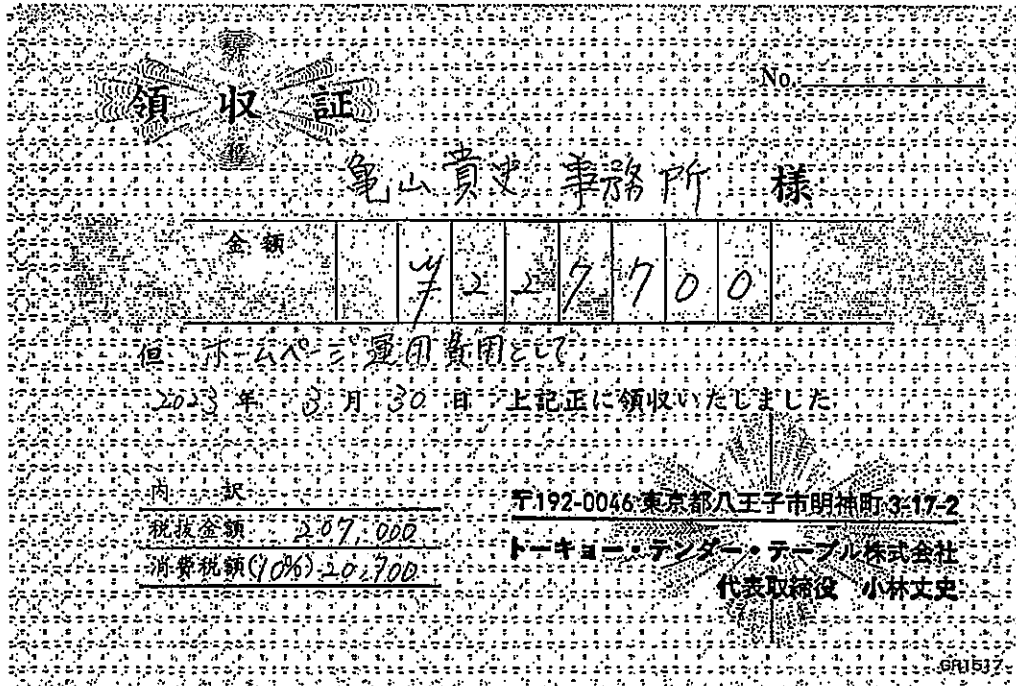 領収証
No.
亀山貴史事務所 様
金額 ¥227700
但 ホームページ運用費用として
2023年 3月 30日 上記正に領収いたしました
内訳
税抜金額 207,000
消費税額(10%) 20,700
〒192-0046 東京都八王子市明神町3-17-2
トーキョー・テンダー・テーブル株式会社
代表取締役 小林丈史
GR1517